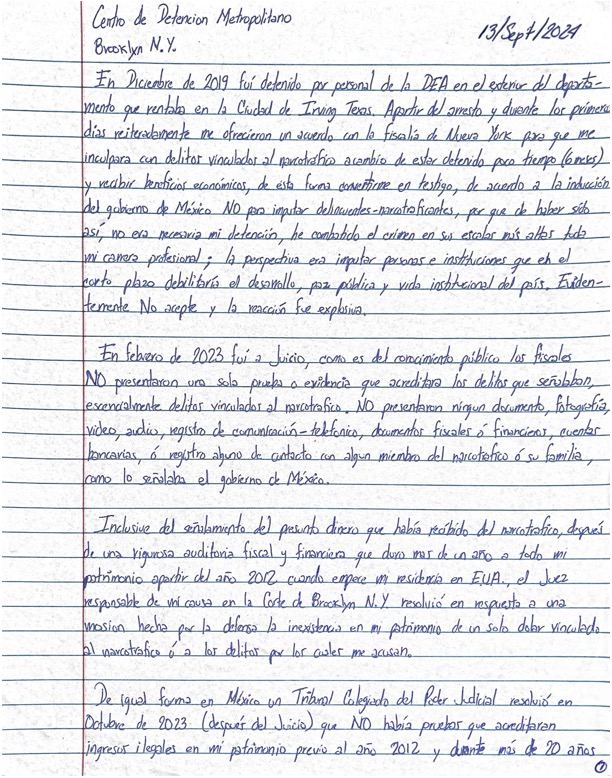 Centro de Detencion Metropolitano
Brooklyn N.Y.
13/Sept/2024
En Diciembre de 2019 fuí detenido por personal de la DEA en el exterior del departa-
mento que rentaba en la Ciudad de Irving Texas. Apartir del arresto y durante los primeros
dias reiteradamente me ofrecieron un acuerdo con la fiscalía de Nueva York para que me
inculpara con delitos vinculados al narcotráfico acambio de estar detenido poco tiempo (6 meses)
y recibir beneficios económicos, de esta forma convertirme en testigo, de acuerdo a la inducción
del gobierno de México NO para imputar delincuentes-narcotraficantes, por que de haber sido
así, no era necesaria mi detención, he combatido el crimen en sus escalas más altas toda
mi carrera profesional; la perspectiva era imputar personas e instituciones que en el
corto plazo debilitaría el desarrollo, paz pública y vida institucional del país. Eviden-
temente No acepte y la reacción fue explosiva.
En febrero de 2023 fui a Juicio, como es del conocimiento público los fiscales
NO presentaron una sola prueba o evidencia que acreditara los delitos que señalaban,
escencialmente delitos vinculados al narcotrafico. NO presentaron ningun documento, fotografía,
video, audio, registro de comunicación-telefonico, documentos fiscales ó financieros, cuentas
bancarias, ó registro alguno de contacto con algun miembro del narcotrafico ó su familia,
como lo señalaba el gobierno de México.
Inclusive del señalamiento del presunto dinero que había recibido del narcotrafico, después
de una rigurosa auditoria fiscal y financiera que duro mas de un año a todo mi
patrimonio apartir del año 2012 cuando empece mi residencia en EUA., el Juez
responsable de mi causa en la Corte de Brooklyn N.Y. resolvió en respuesta a una
mosion hecha por la defensa la inexistencia en mi patrimonio de un solo dolar vinculado
al narcotrafico ó a los delitos por los cuales me acusan.
De igual forma en México un Tribunal Colegiado del Poder Judicial resolvió en
Octubre de 2023 (después del Juicio) que NO había pruebas que acreditaran
ingresos ilegales en mi patrimonio previo al año 2012 y durante más de 20 años
1